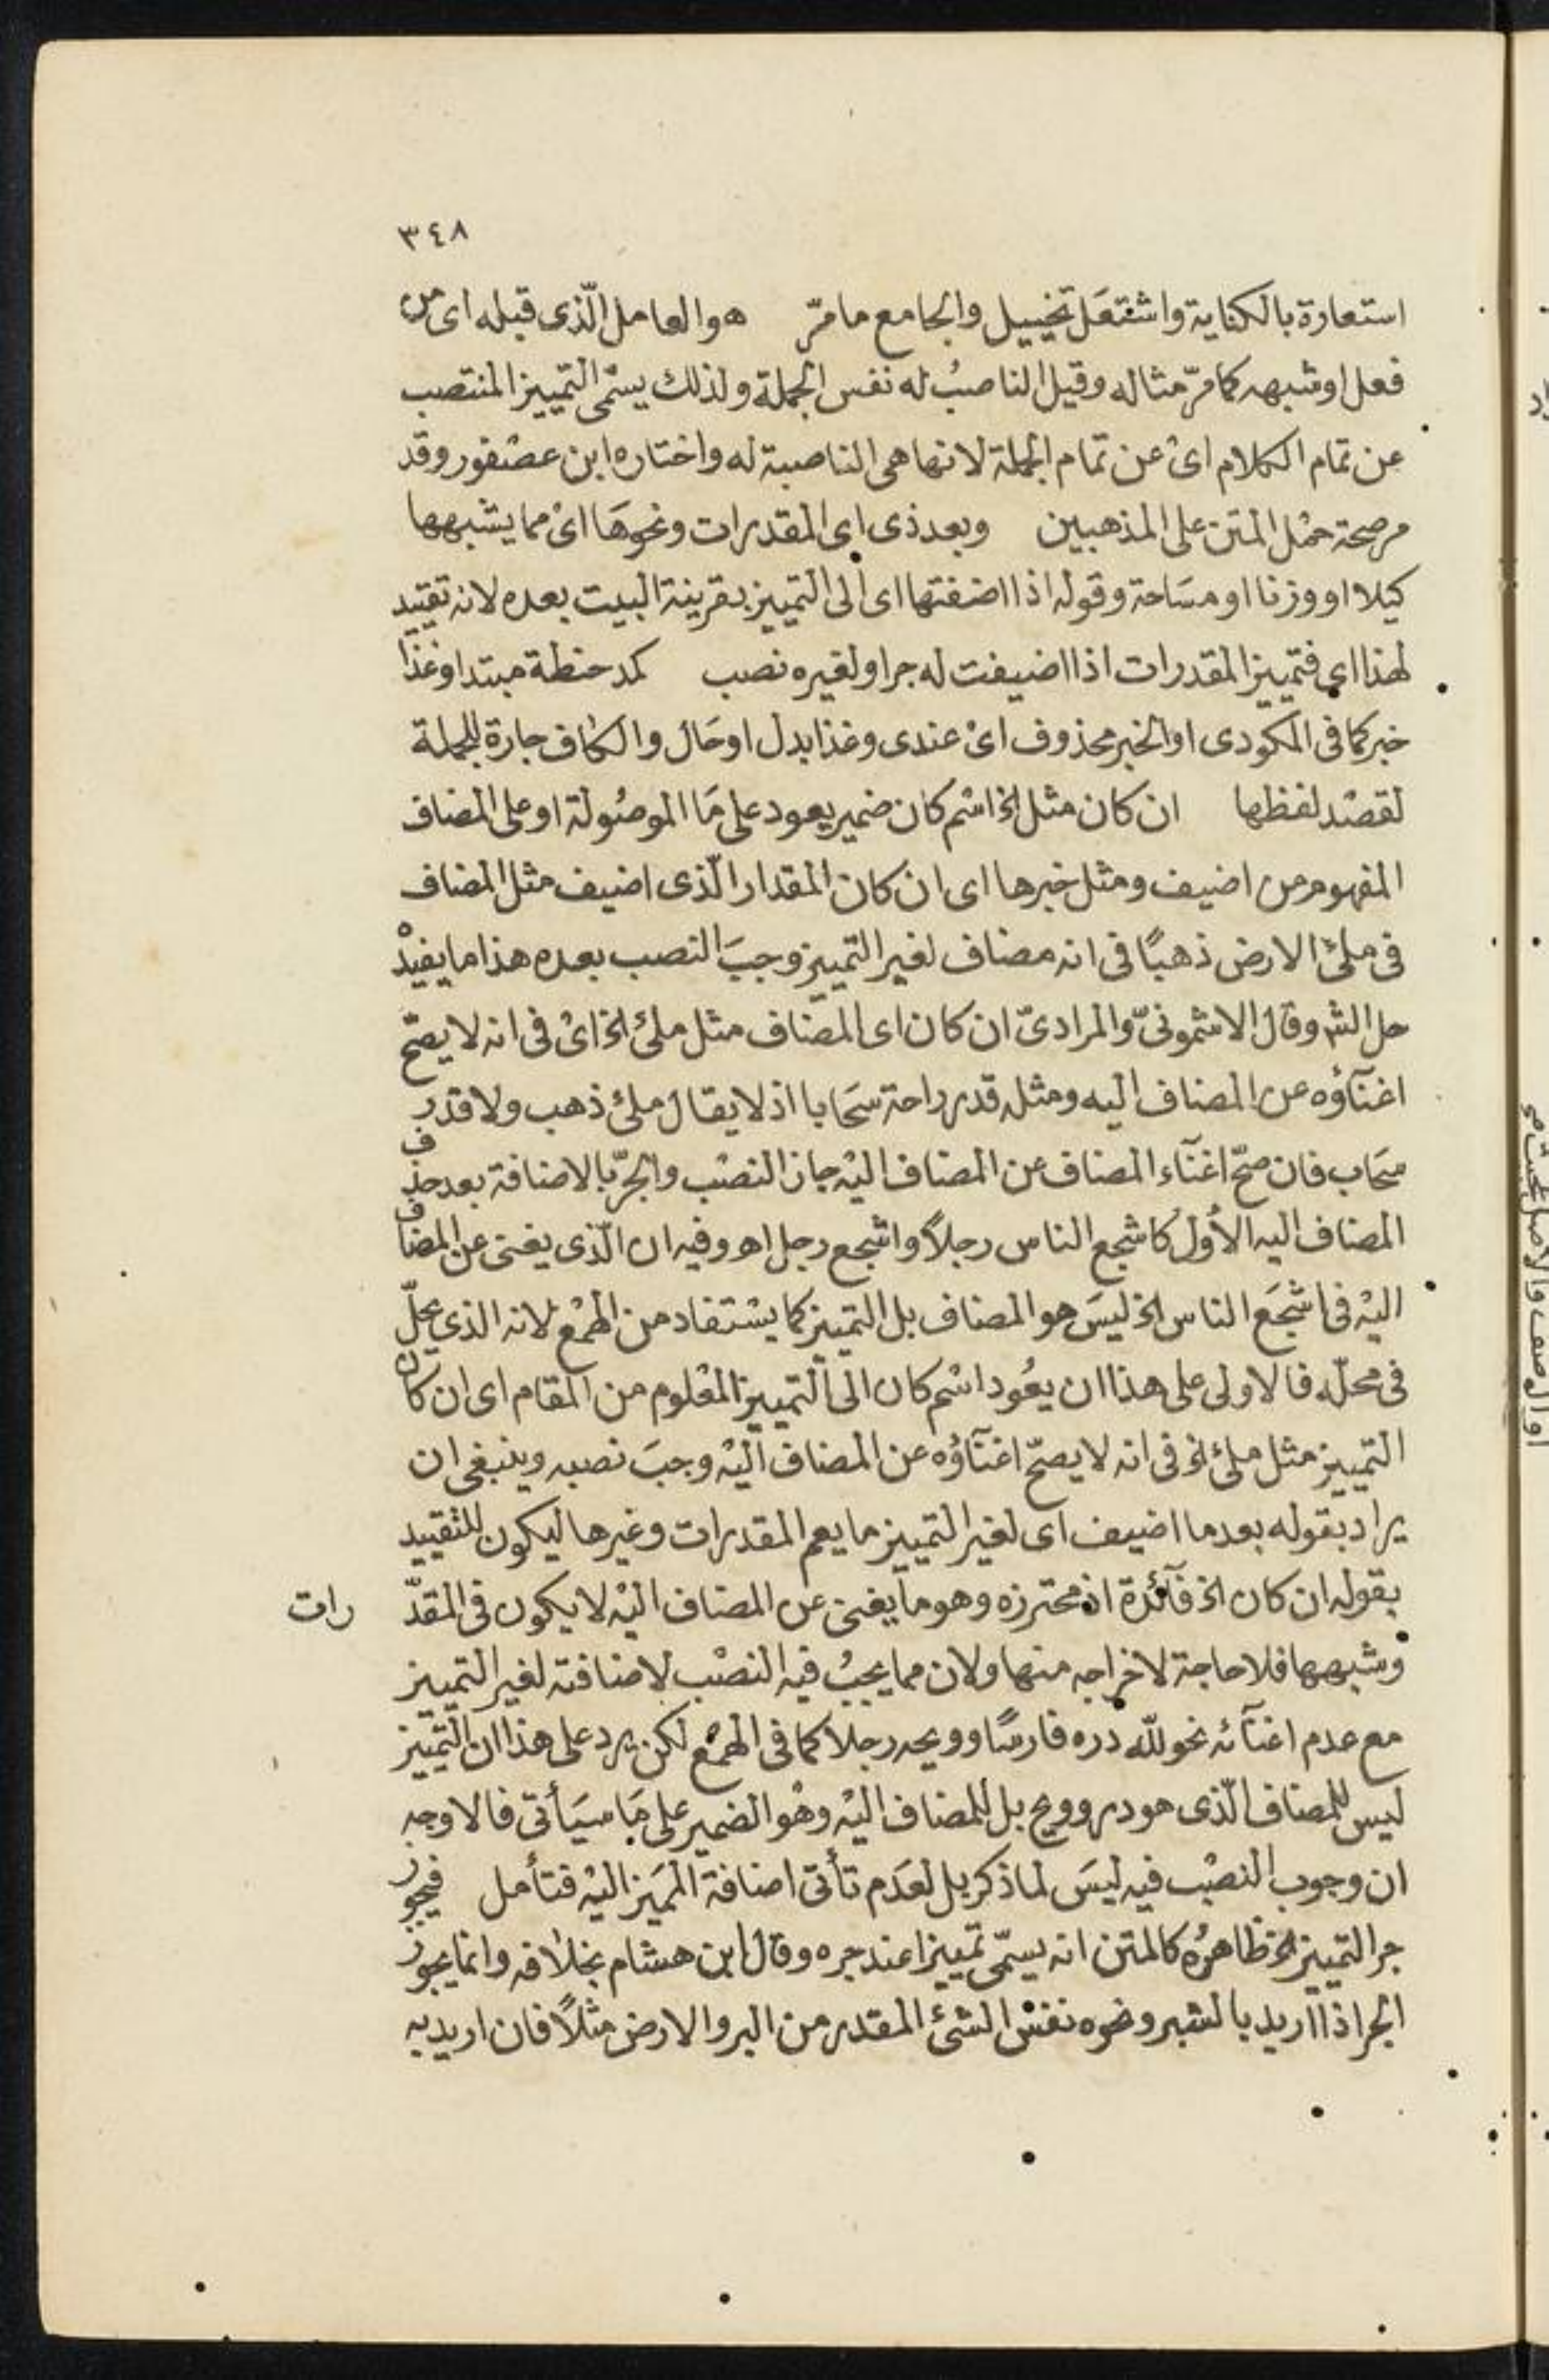 ٣٤٨
استعارة بالكناية واشتعل تخييل والجامع ما مرّ هو العامل الّذى قبله اى من
فعل او شبهه كما مرّ مثاله وقيل الناصبُ له نفس الجملة ولذلك يسمّى التمييز المنتصب
عن تمام الكلام اىْ عن تمام الجملة لانها هى الناصبة له واختاره ابن عصْفور وقد
مر صحة حمْل المتن على المذهبين وبعد ذى اى المقدرات ونحوهَا اىْ مما يشبهها
كيلا او وزنا او مسَاحة وقوله اذا اضفتها اى الى التمييز بقرينة البيت بعده لانه تقييد
لهذا اى فتمييز المقدرات اذا اضيفت له جر او لغيره نصب كمد حنطة مبتدا وغذا
خبر كما فى المكودى او الخبر محذوف اىْ عندى وغذا بدل او حَال والكاف جارة للجملة
لقصْد لفظها ان كان مثل الخ اسْم كان ضمير يعود على مَا الموصُولة او على المضاف
المفهوم من اضيف ومثل خبرها اى ان كان المقدار الّذى اضيف مثل المضاف
فى ملئ الارض ذهبًا فى انه مضاف لغير التمييز وجبَ النصب بعده هذا ما يفيدْه
حل الشر وقال الاشمونىّ والمرادىّ ان كان اى المضاف مثل ملئ الخ اىْ فى انه لا يصّح
اغنآؤه عن المضاف اليه ومثله قدر راحة سَحابا اذ لا يقال ملئ ذهب ولا قدر
سَحاب فان صّح اغنآء المضاف عن المضاف اليْه جاز النصْب والجرّ بالاضافة بعد حذف
المضاف اليه الأول كاشجع الناس رجلاً واشجع رجل اهـ وفيه ان الّذى يغنى عن المضاف
اليْه فى اشجَع الناس الخ ليسَ هو المضاف بل التمييز كما يسْتفاد من الهمْع لانه الذى يحلّ
فى محلّه فالاولى على هذا ان يعُود اسْم كان الى التمييز المعْلوم من المقام اى ان كان
التمييز مثل ملئ الخ فى انه لا يصّح اغنآؤه عن المضاف اليْه وجبَ نصبه وينبغى ان
يراد بقوله بعد ما اضيف اى لغير التمييز ما يعم المقدرات وغيرها ليكون للتقييد
بقوله ان كان الخ فآئدة اذ محترزه وهو ما يغنى عن المضاف اليْه لا يكون فى المقدّرات
وشبهها فلا حاجة لاخراجه منها ولان مما يجبُ فيه النصْب لاضافته لغير التمييز
مع عدم اغنآئه نحو لله دره فارسًا وويحه رجلا كما فى الهمْع لكن يرد على هذا ان التمييز
ليس للمضاف الّذى هو در وويح بل للمضاف اليْه وهْو الضمير على مَا سيَأتى فالاوجه
ان وجوب النصْب فيه ليسَ لما ذكر بل لعدَم تأتى اضافة الممَيز اليْه فتأمل فيجوز
جر التمييز الخ ظاهرُه كالمتن انه يسمّى تمييزا عند جره وقال ابن هشام بخلافه وانما يجوز
الجر اذا اريد بالشبر ونحوه نفسْ الشئ المقدر من البر والارض مثلاً فان اريد به